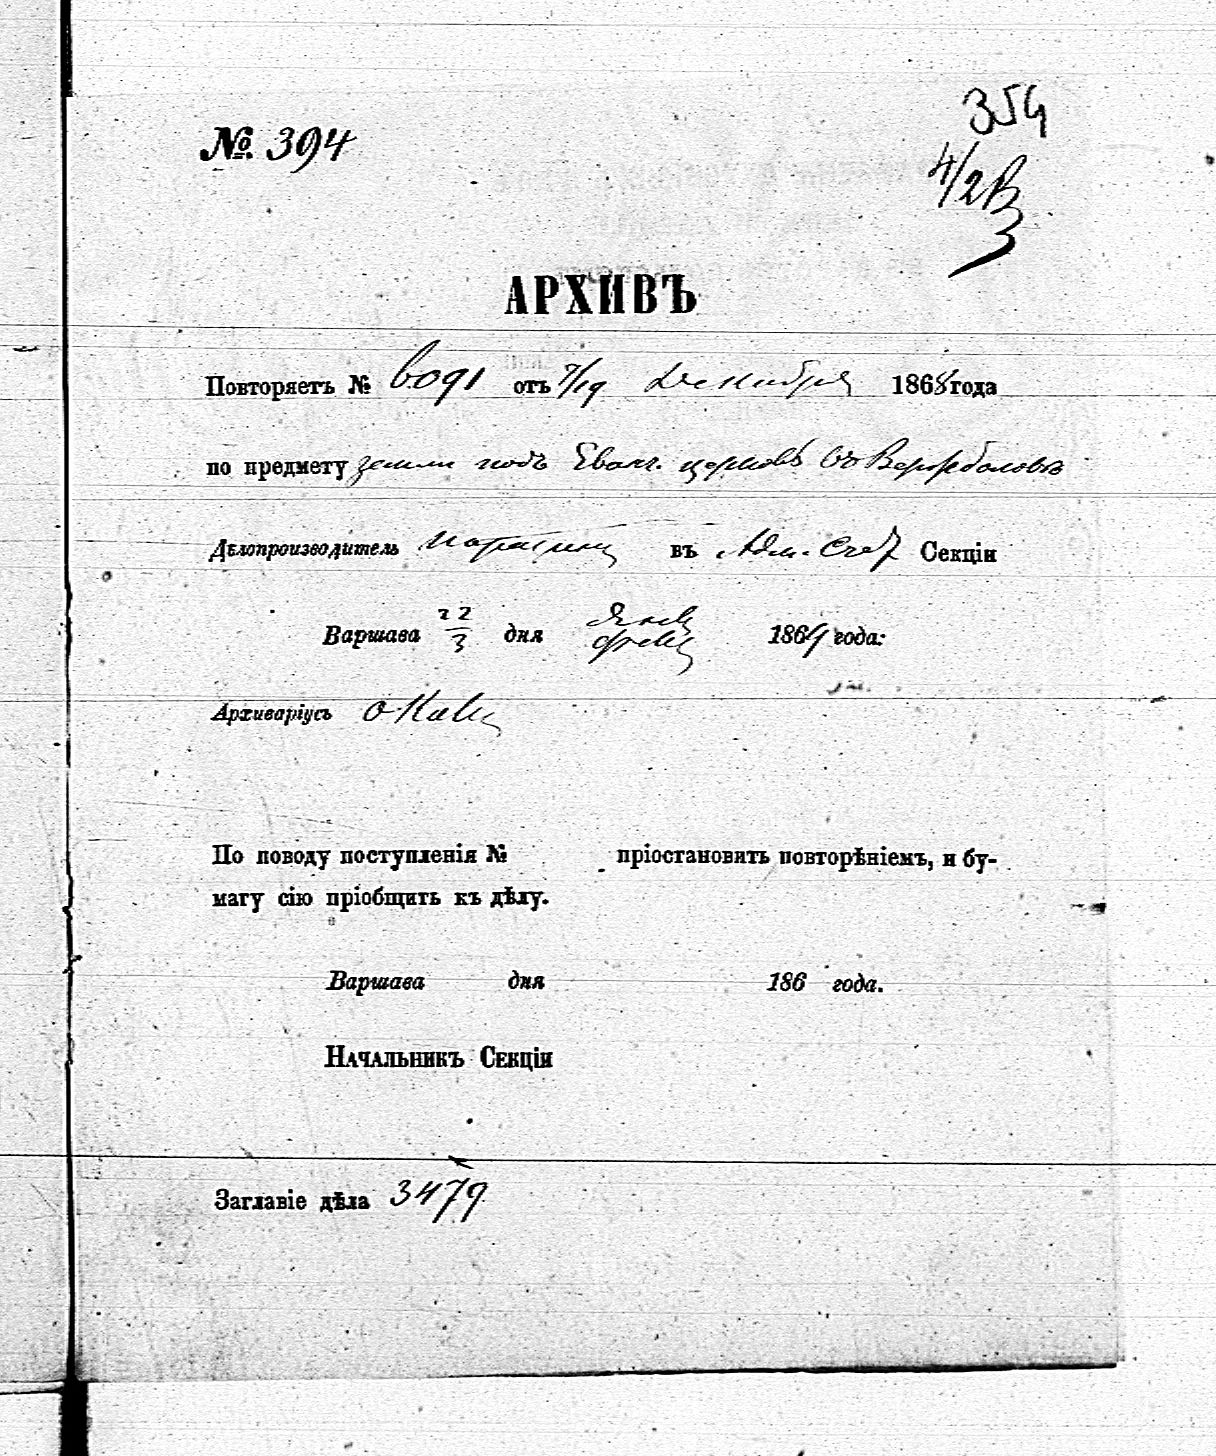 354
№ 394
4/2
АРХИВЪ
Повторяетъ № 6091 отъ 7/19 Декабря 1868 года
по предмету земли подъ Еванг. церковь въ Вержболовѣ
Дѣлопроизводитель въ Адм. Секціи
Варшава 22/3 дня Янв/Фев 1869 года:
Архиваріусъ
По поводу поступленія № пріостановить повтореніемъ, и бу-
магу сію пріобщить къ дѣлу.
Варшава дня 186 года.
Начальникъ Секціи
Заглавіе дѣла 3479